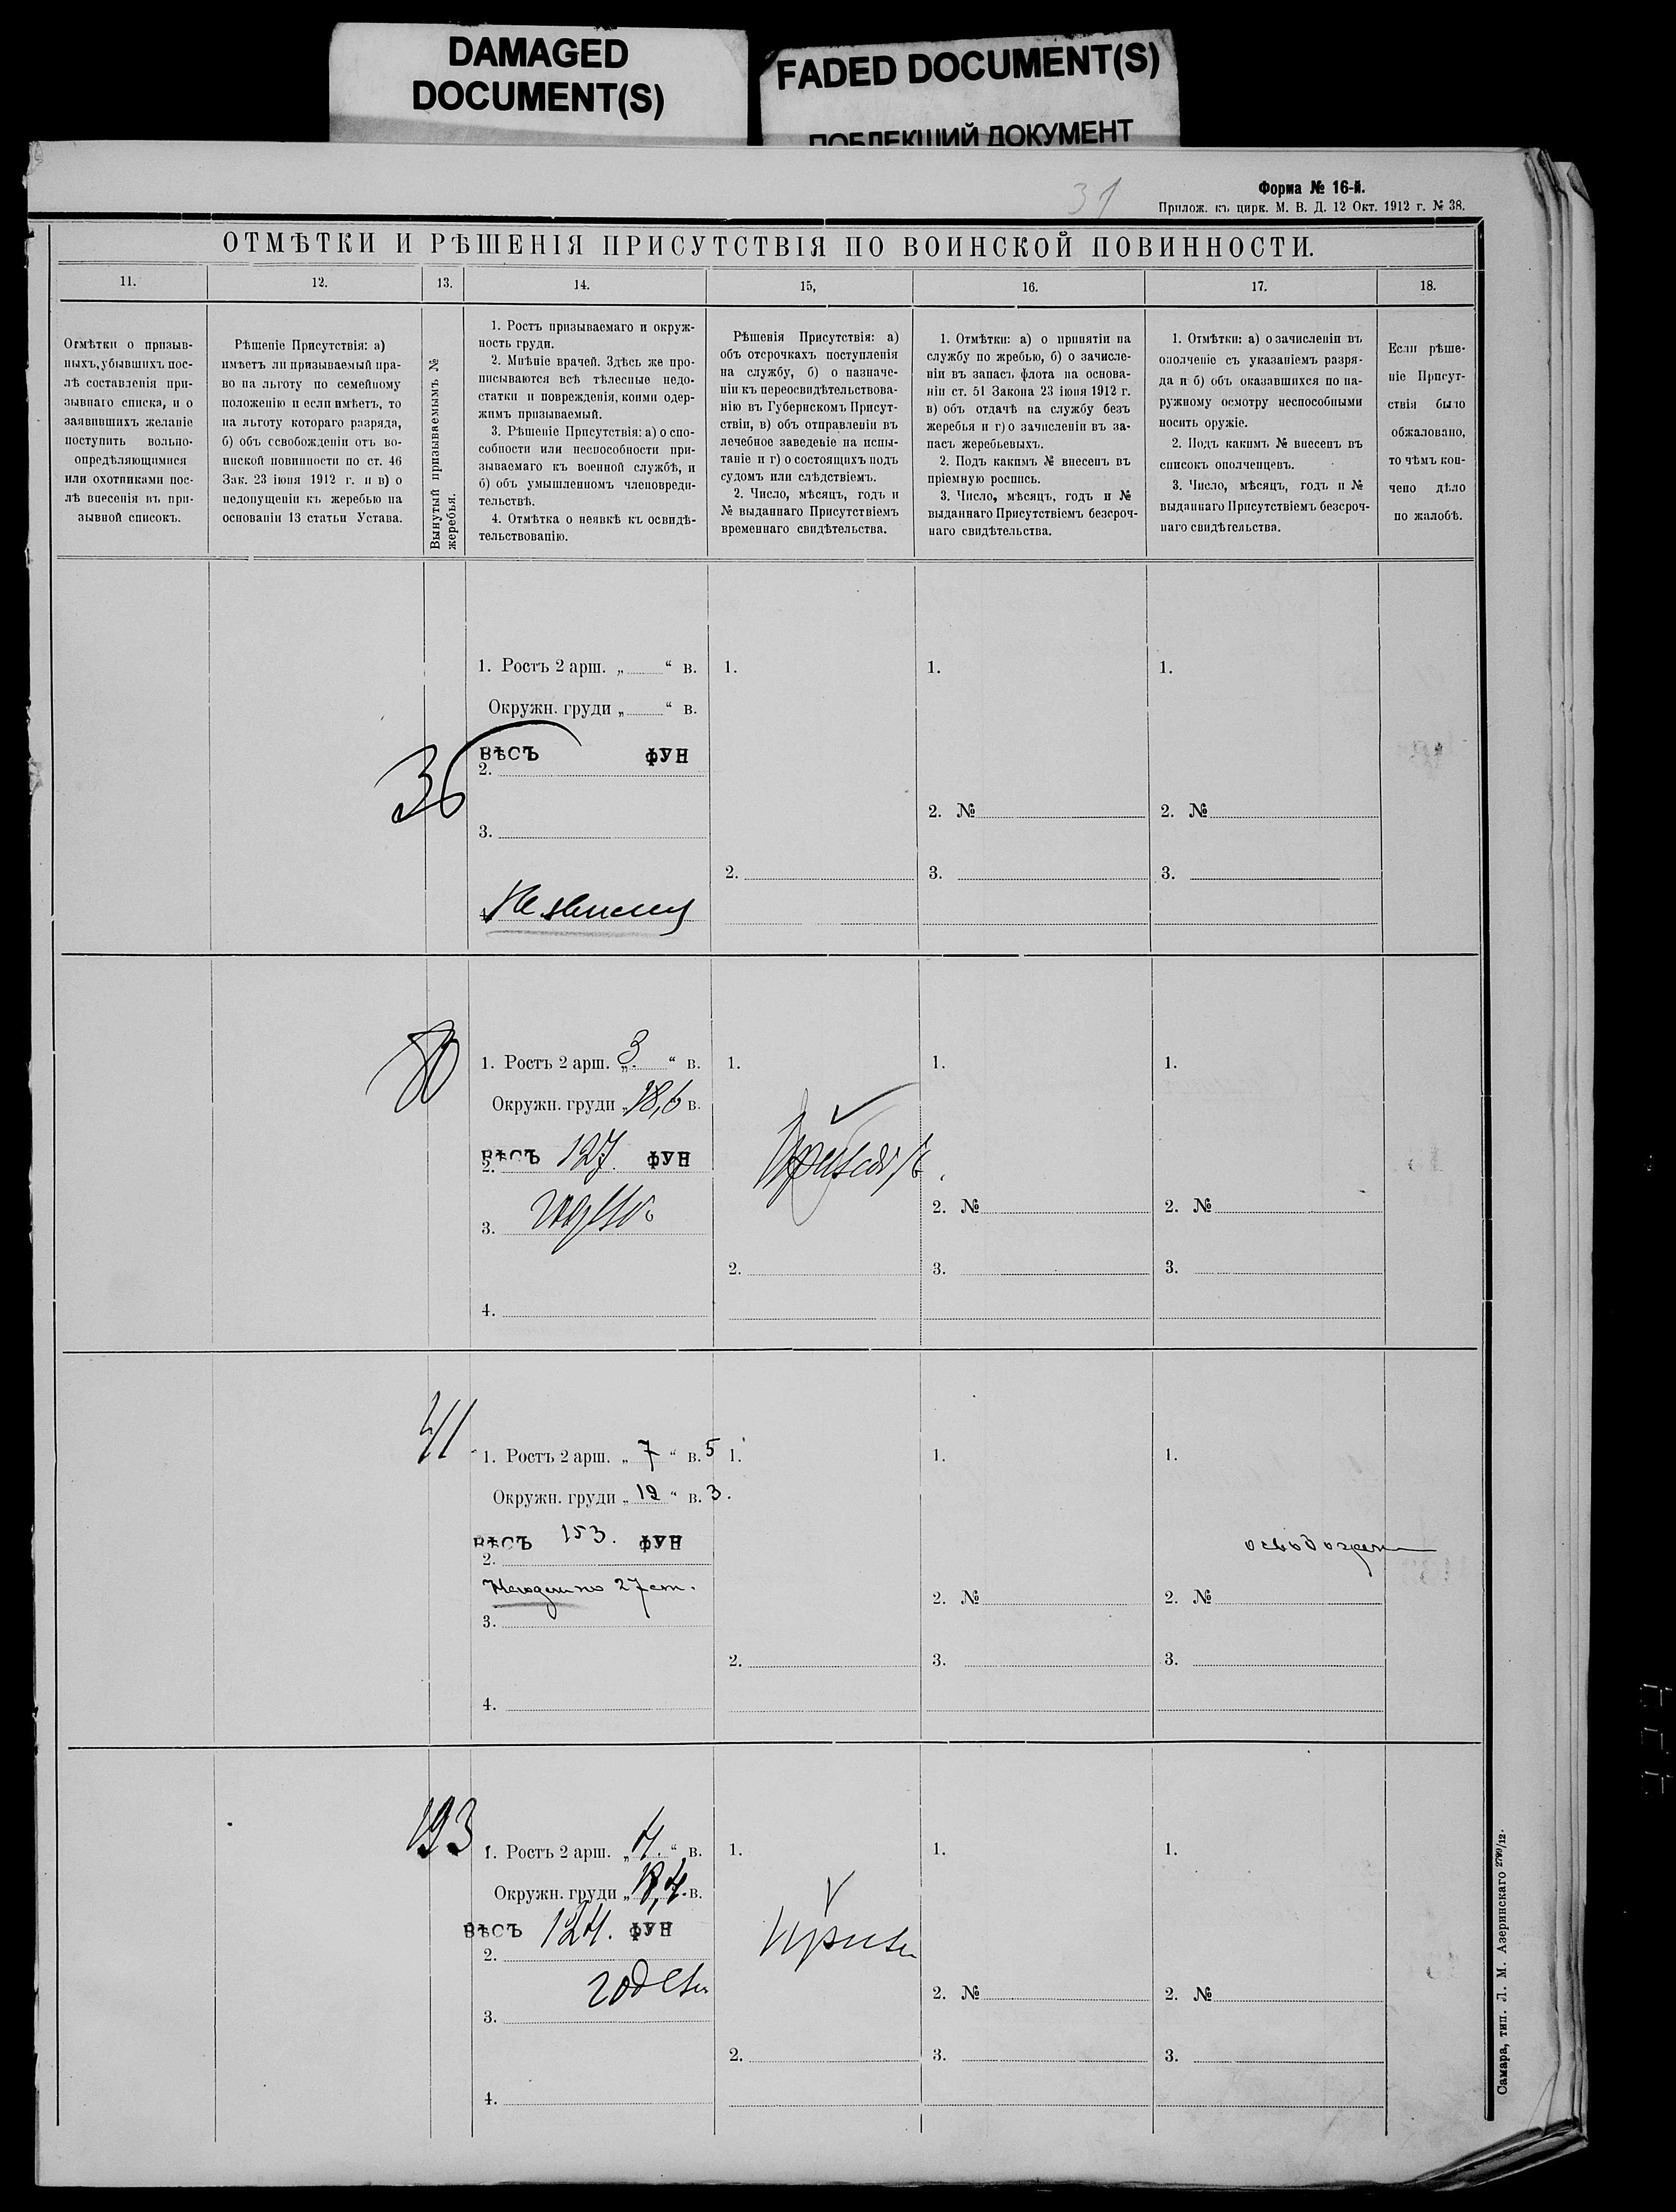 DAMAGED
DOCUMENT(S)
FADED DOCUMENT(S)
ПОБЛЕКШИЙ ДОКУМЕНТ
31
Форма № 16-й.
Прилож. къ цирк. М. В. Д. 12 Окт. 1912 г. № 38.
ОТМѢТКИ И РѢШЕНІЯ ПРИСУТСТВІЯ ПО ВОИНСКОЙ ПОВИННОСТИ.
11.
12.
13.
14.
15,
16.
17.
18.
Отмѣтки о призыв-
ныхъ, убывшихъ пос-
лѣ составленія при-
зывнаго списка, и о
заявившихъ желаніе
поступить вольно-
опредѣляющимися
или охотниками пос-
лѣ внесенія въ при-
зывной списокъ.
Рѣшеніе Присутствія: а)
имѣетъ ли призываемый пра-
во на льготу по семейному
положенію и если имѣетъ, то
на льготу котораго разряда,
б) объ освобожденіи отъ во-
инской повинности по ст. 46
Зак. 23 іюня 1912 г. и в) о
недопущеніи къ жеребью на
основаніи 13 статьи Устава.
Вынутый призываемымъ №
жеребья.
1. Ростъ призываемаго и окруж-
ность груди.
2. Мнѣніе врачей. Здѣсь же про-
писываются всѣ тѣлесные недо-
статки и поврежденія, коими одер-
жимъ призываемый.
3. Рѣшеніе Присутствія: а) о спо-
собности или неспособности при-
зываемаго къ военной службѣ, и
б) объ умышленномъ членовреди-
тельствѣ.
4. Отмѣтка о неявкѣ къ освидѣ-
тельствованію.
Рѣшенія Присутствія: а)
объ отсрочкахъ поступленія
на службу, б) о назначе-
ніи къ переосвидѣтельствова-
нію въ Губернскомъ Присут-
ствіи, в) объ отправленіи въ
лечебное заведеніе на испы-
таніе и г) о состоящихъ подъ
судомъ или слѣдствіемъ.
2. Число, мѣсяцъ, годъ и
№ выданнаго Присутствіемъ
временнаго свидѣтельства.
1. Отмѣтки: а) о принятіи на
службу по жребью, б) о зачисле-
ніи въ запасъ флота на основа-
ніи ст. 51 Закона 23 іюня 1912 г.
в) объ отдачѣ на службу безъ
жеребья и г) о зачисленіи въ за-
пасъ жеребьевыхъ.
2. Подъ какимъ № внесенъ въ
пріемную роспись.
3. Число, мѣсяцъ, годъ и №
выданнаго Присутствіемъ безсроч-
наго свидѣтельства.
1. Отмѣтки: а) о зачисленіи въ
ополченіе съ указаніемъ разря-
да и б) объ оказавшихся по на-
ружному осмотру неспособными
носить оружіе.
2. Подъ какимъ № внесенъ въ
списокъ ополченцевъ.
3. Число, мѣсяцъ, годъ и №
выданнаго Присутствіемъ безсроч-
наго свидѣтельства.
Если рѣше-
ніе Присут-
ствія было
обжаловано,
то чѣмъ кон-
чено дѣло
по жалобѣ.
36
1. Ростъ 2 арш. „ “ в.
Окружн. груди „ “ в.
ВѢСЪ ФУН
2.
3.
4. Не явился
1.
2.
1.
2. №
3.
1.
2. №
3.
80
1. Ростъ 2 арш. „ 3 “ в.
Окружн. груди „ 18,6 в.
ВѢСЪ 127. ФУН
2.
годенъ
3.
4.
1.
2.
1.
2. №
3.
1.
2. №
3.
41
1. Ростъ 2 арш. „ 7 “ в. 5
Окружн. груди „ 19 “ в. 3.
ВѢСЪ 153. ФУН
2.
Негоденъ по 27 ст.
3.
4.
1.
2.
1.
2. №
3.
1.
освобожден
2. №
3.
193
1. Ростъ 2 арш. „ 4. “ в.
Окружн. груди „ 18,4. в.
ВѢСЪ 124. ФУН
2.
годенъ
3.
4.
1.
2.
1.
2. №
3.
1.
2. №
3.
Самара, тип. Л. М. Азеринскаго 2799/12.